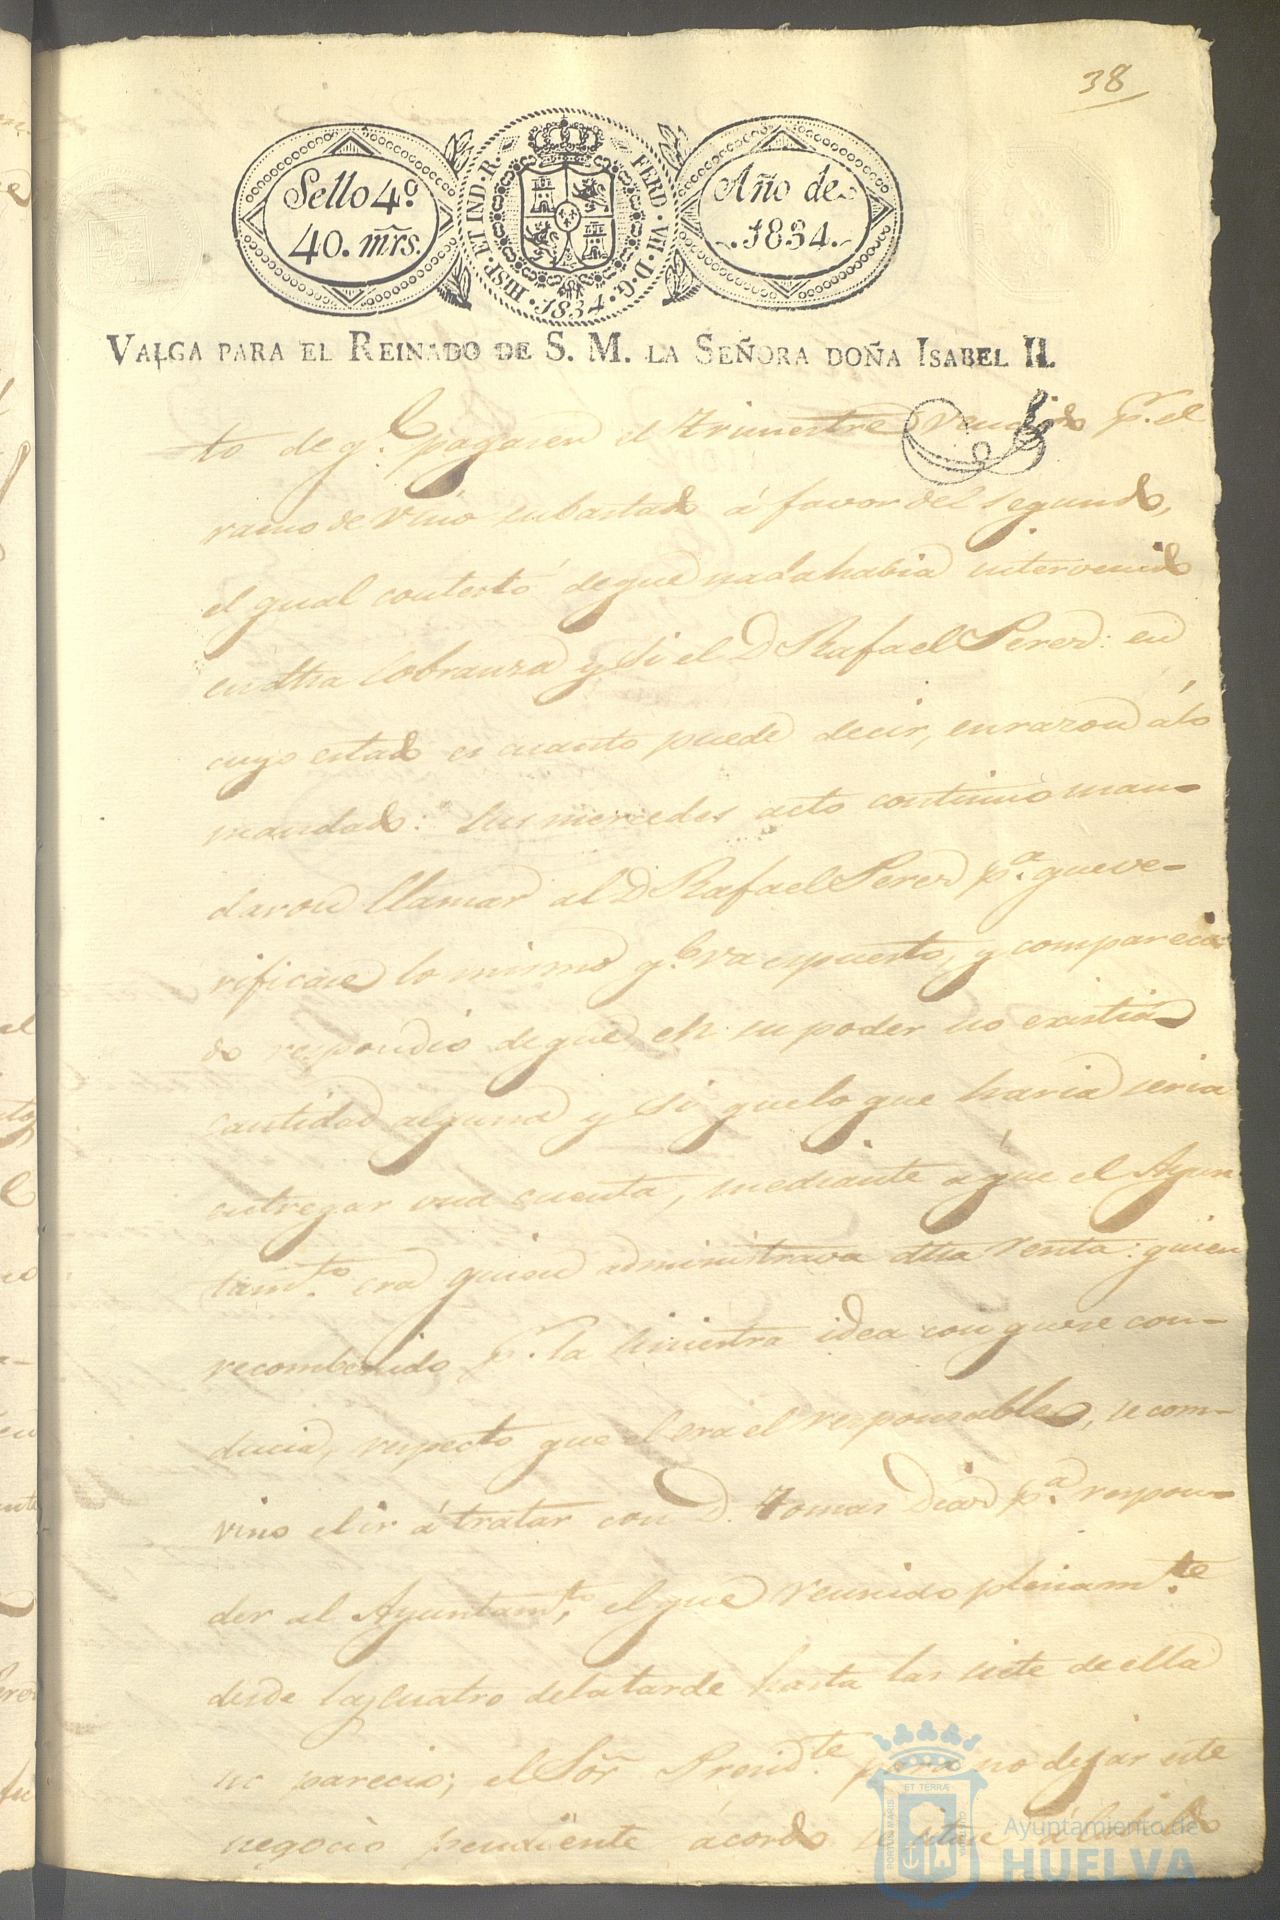 38
Sello 4º
40. mrs.
HISP. ET IND. R. FERD. VII. D. G. 1834.
Año de
1834.
VALGA PARA EL REINADO DE S. M. LA SEÑORA DOÑA ISABEL II.
to de q.e pagasen el trimestre vencido p.r el
ramo de vino subastado á favor del segundo,
el qual contestó de que nada habia intervenido
en dha cobranza y si el D Rafael Perez: en
cuyo estado es cuanto puede decir, en razon á lo
mandado: sus mercedes acto continuo man-
daron llamar al D Rafael Perez p.a que ve-
rificase lo mismo q.e va espuesto, y comparecie
do respondió de que en su poder no existia
cantidad alguna y si que lo que haria seria
entregar una cuenta, mediante á que el Ayun
tam.to era quien administrava dha renta: quien
recombenido p.r la siniestra idea con que se con-
ducia, respecto que el era el responsable, se com-
vino el ir á tratar con D. Tomas Diaz p.a respon-
der al Ayuntam.to, el que reunido plenam.te
desde las cuatro de la tarde hasta las siete de ella
no parecio; el Sor Presid.te para no dejar este
negocio pendiente ácordo se á Cabildo
PORTUS MARIS ET TERRÆ
Ayuntamiento de
HUELVA